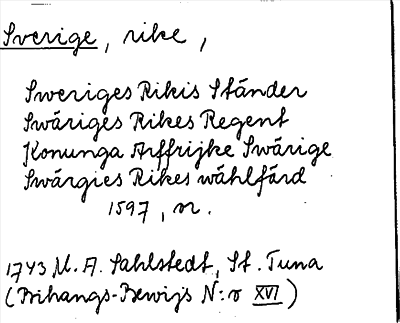 Sverige, rike,
Sweriges Rikis Ständer
Swäriges Rikes Regent
Konunga Arffrijke Swärige
Swärgies Rikes wählfärd
1597, n.
1743 M. A. Sahlstedt, St. Tuna
(Bihangs-Bewijs N:o XVI)